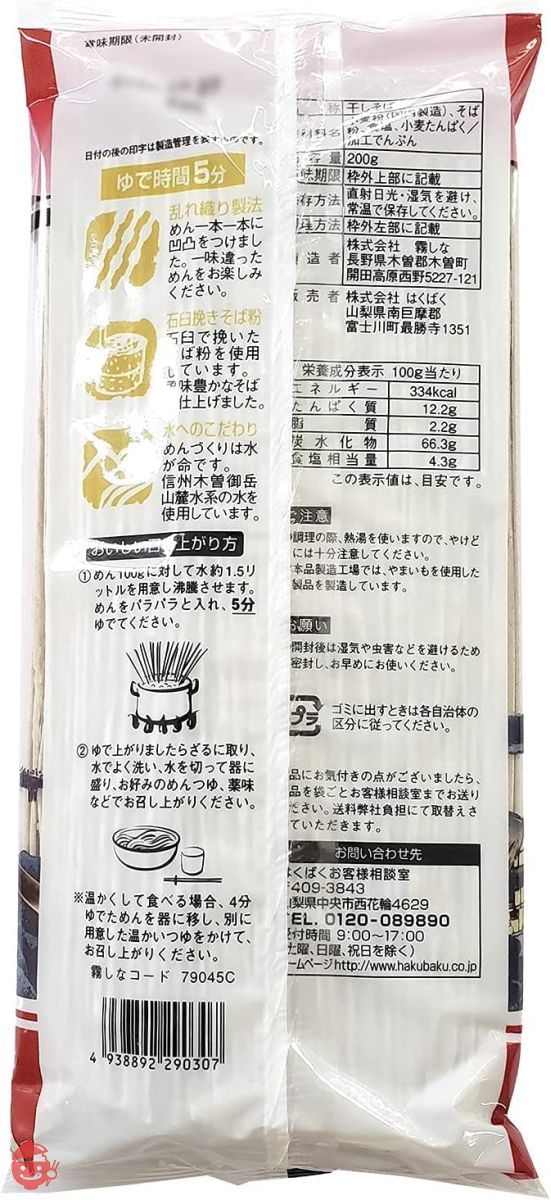 賞味期限(未開封)
日付の後の印字は製造管理を表すものです。
ゆで時間5分
乱れ織り製法
めん一本一本に
凹凸をつけまし
た。一味違った
めんをお楽しみ
ください。
石臼挽きそば粉
石臼で挽いた
そば粉を使用
しています。
風味豊かなそば
仕上げました。
水へのこだわり
めんづくりは水
が命です。
信州木曽御岳
山麓水系の水を
使用しています。
おいしい召し上がり方
①めん100gに対して水約1.5リ
ットルを用意し沸騰させます。
めんをパラパラと入れ、5分
ゆでてください。
②ゆで上がりましたらざるに取り、
水でよく洗い、水を切って器に
盛り、お好みのめんつゆ、薬味
などでお召し上がりください。
※温かくして食べる場合、4分
ゆでためんを器に移し、別に
用意した温かいつゆをかけて、
お召し上がりください。
霧しなコード 79045C
4 938892 290307
称 干しそば
小麦粉(国内製造)、そば
粉、食塩、小麦たんぱく/
加工でんぷん
容量 200g
味期限 枠外上部に記載
存方法 直射日光・湿気を避け、
常温で保存してください。
方法 枠外左部に記載
造者 株式会社 霧しな
長野県木曽郡木曽町
開田高原西野5227-121
販売者 株式会社 はくばく
山梨県南巨摩郡
富士川町最勝寺1351
栄養成分表示 100g当たり
エネルギー 334kcal
たんぱく質 12.2g
脂質 2.2g
炭水化物 66.3g
食塩相当量 4.3g
この表示値は、目安です。
ご注意
調理の際、熱湯を使いますので、やけど
には十分注意してください。
本品製造工場では、やまいもを使用した
製品を製造しています。
お願い
開封後は湿気や虫害などを避けるため
密封し、お早めにお使いください。
プラ
ゴミに出すときは各自治体の
区分に従ってください。
品にお気付きの点がございましたら、
品を袋ごとお客様相談室までお送り
ださい。送料弊社負担にて取替えさ
ていただきます。
お問い合わせ先
はくばくお客様相談室
〒409-3843
山梨県中央市西花輪4629
TEL. 0120-089890
受付時間 9:00~17:00
(土曜、日曜、祝日を除く)
ホームページhttp://www.hakubaku.co.jp